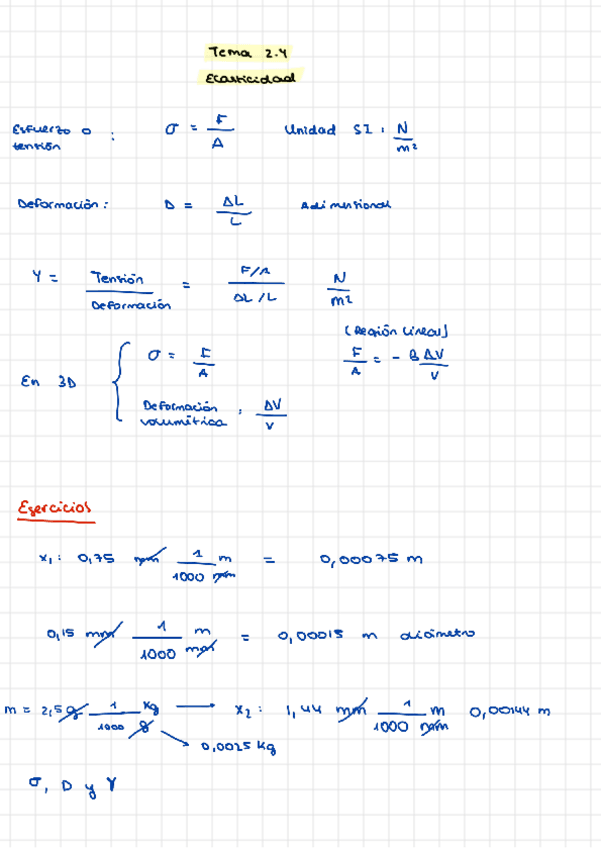 Tema 2.4
Elasticidad
Esfuerzo o tensión : σ = F/A Unidad SI : N/m²
Deformación : D = ΔL/L Adimensional
Y = Tensión/Deformación = (F/A)/(ΔL/L) N/m²
(Región lineal)
En 3D { σ = F/A F/A = - B ΔV/V
Deformación volumétrica : ΔV/V
Ejercicios
x₁ : 0,75 mm 1/1000 m/mm = 0,00075 m
0,15 mm 1/1000 m/mm = 0,00015 m diámetro
m = 2,5 g 1/1000 kg/g → x₂ : 1,44 mm 1/1000 m/mm 0,00144 m
→ 0,0025 kg
σ, D y Y